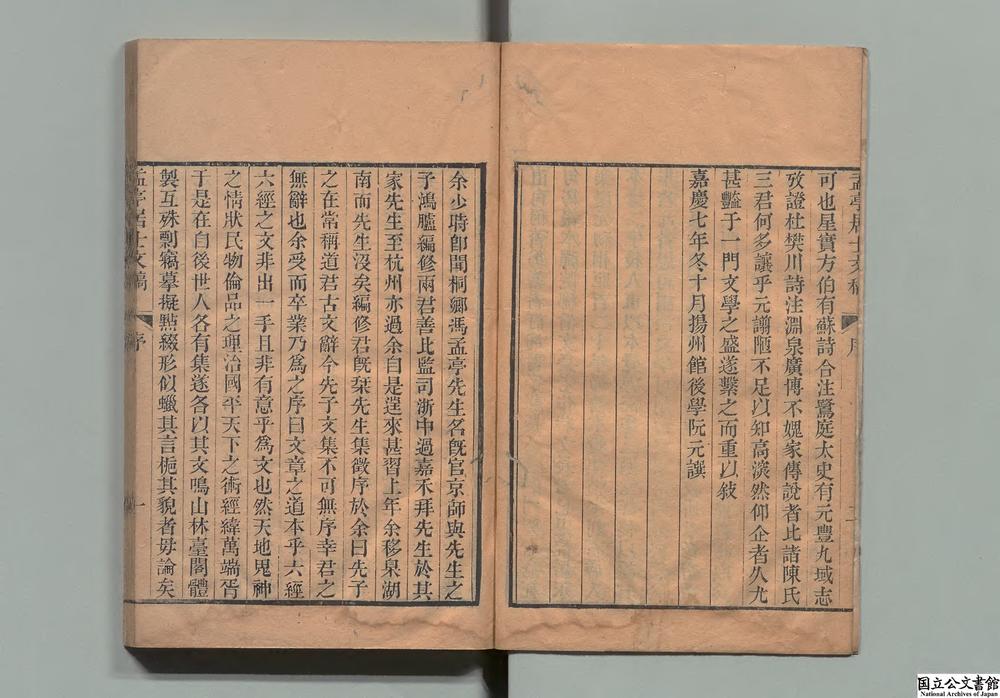 可也星實方伯有蘇詩合注鷺庭太史有元豐九域志
攷證杜樊川詩注淵泉廣博不媿家傳說者比諸陳氏
三君何多讓乎元謭陋不足以知高深然仰企者久尤
甚豔于一門文學之盛遂繫之而重以敍
嘉慶七年冬十月揚州館後學阮元譔
孟亭居士文稿
序
二
余少時卽聞桐鄉馮孟亭先生名旣官京師與先生之
子鴻臚編修兩君善比監司浙中過嘉禾拜先生於其
家先生至杭州亦過余自是遂來甚習上年余移臬湖
南而先生沒矣編修君旣栞先生集徵序於余曰先子
之在常稱道君古文辭今先子文集不可無序幸君之
無辭也余受而卒業乃爲之序曰文章之道本乎六經
六經之文非出一手且非有意乎爲文也然天地鬼神
之情狀民物倫品之理治國平天下之術經緯萬端胥
于是在自後世人各有集遂各以其文鳴山林臺閣體
製互殊剽竊摹擬點綴形似蠟其言梔其貌者毋論矣
孟亭居士文稿
序
一
国立公文書館
National Archives of Japan